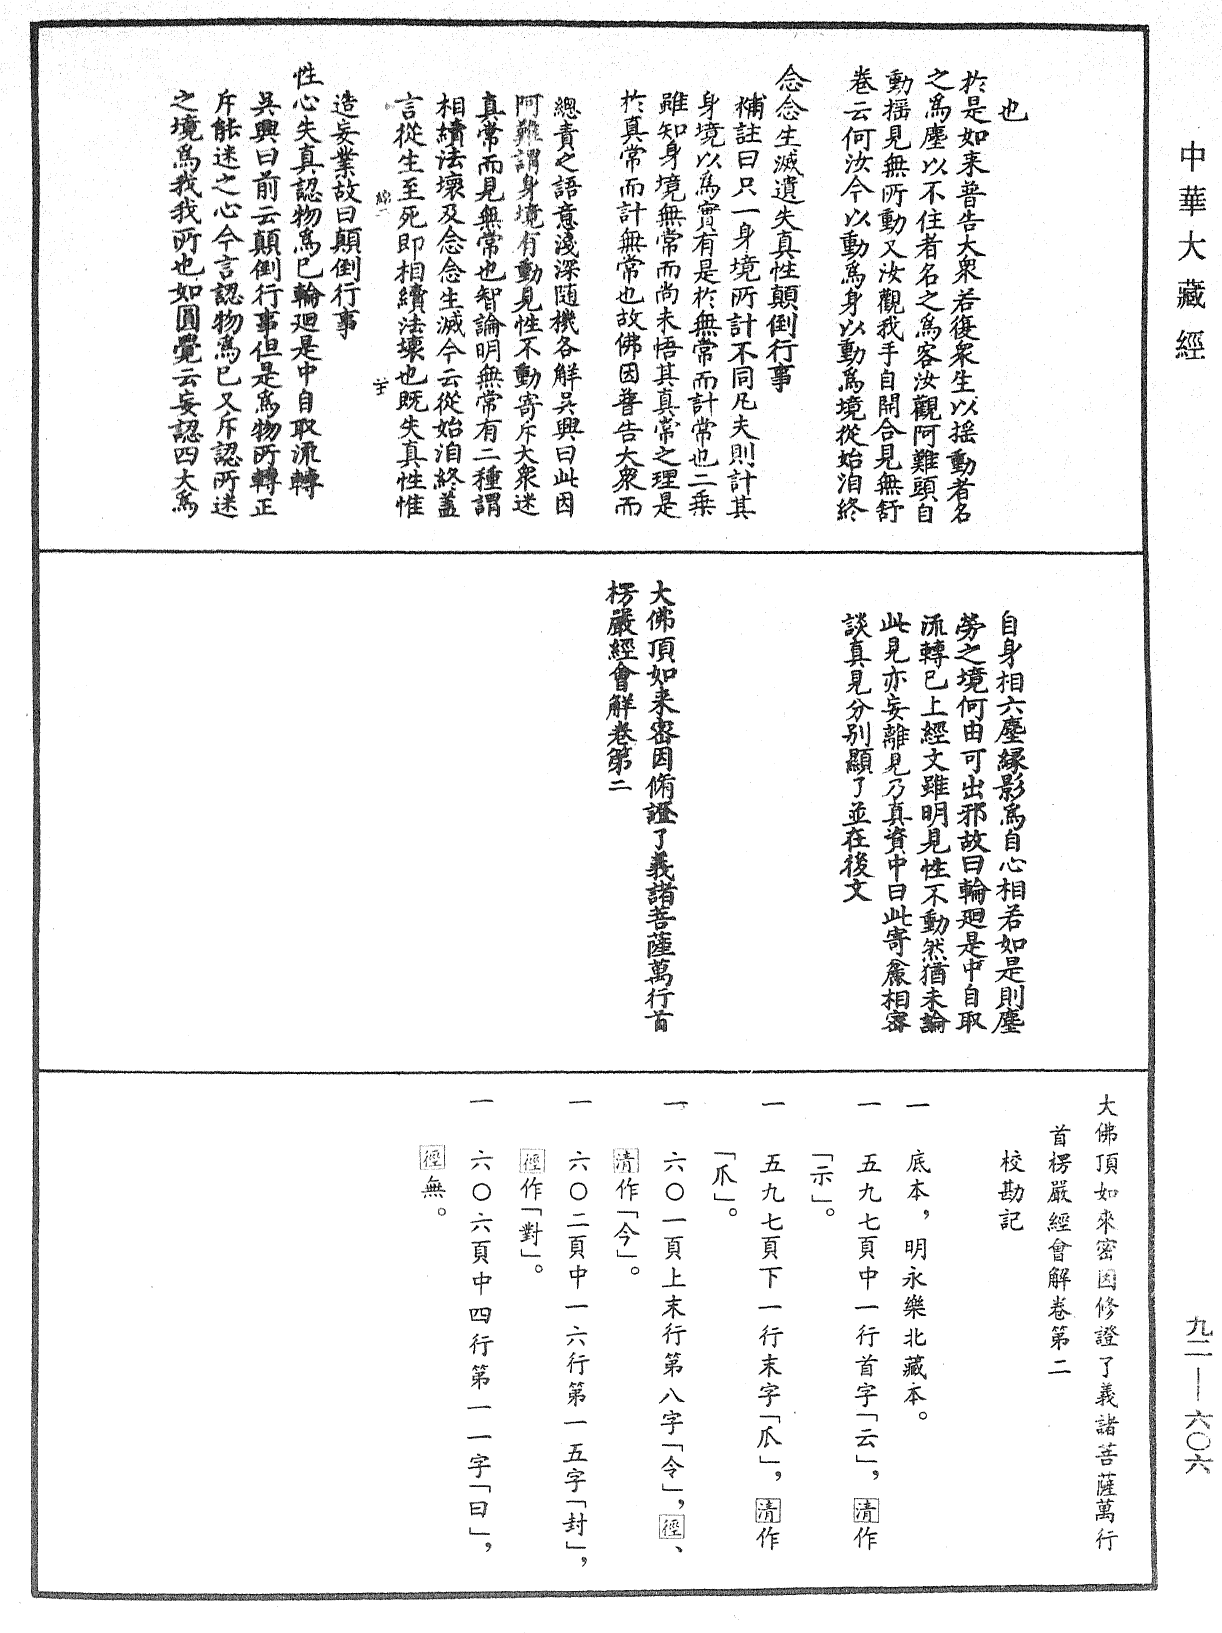 中華大藏經
也
於是如来普告大衆若復衆生以摇動者名
之爲塵以不住者名之爲客汝觀阿難頭自
動摇見無所動又汝觀我手自開合見無舒
卷云何汝今以動爲身以動爲境從始洎終
念念生滅遺失真性顛倒行事
補註曰只一身境所計不同凡夫則計其
身境以爲實有是於無常而計常也二乗
雖知身境無常而尚未悟其真常之理是
於真常而計無常也故佛因普告大衆而
總責之語意淺深随機各解吳興曰此因
阿難謂身境有動見性不動寄斥大衆迷
真常而見無常也智論明無常有二種謂
相續法壞及念念生滅今云從始洎終蓋
言從生至死即相續法壞也既失真性惟
造妄業故曰顛倒行事
性心失真認物爲已輪廻是中自取流轉
吳興曰前云顛倒行事但是爲物所轉正
斥能迷之心今言認物爲已又斥認所迷
之境爲我我所也如圓覺云妄認四大爲
自身相六塵緣影爲自心相若如是則塵
勞之境何由可出邪故曰輪廻是中自取
流轉已上經文雖明見性不動然猶未論
此見亦妄離見乃真資中曰此寄麁相密
談真見分别顯了並在後文
大佛頂如来密因脩證了義諸菩薩萬行首
楞嚴經會解卷第二
大佛頂如來密因修證了義諸菩薩萬行
首楞嚴經會解卷第二
校勘記
一　底本，明永樂北藏本。
一　五九七頁中一行首字「云」，清作
「示」。
一　五九七頁下一行末字「爪」，清作
「爪」。
一　六〇一頁上末行第八字「令」，徑、
清作「今」。
一　六〇二頁中一六行第一五字「封」，
徑作「對」。
一　六〇六頁中四行第一一字「曰」，
徑無。
九二—六〇六